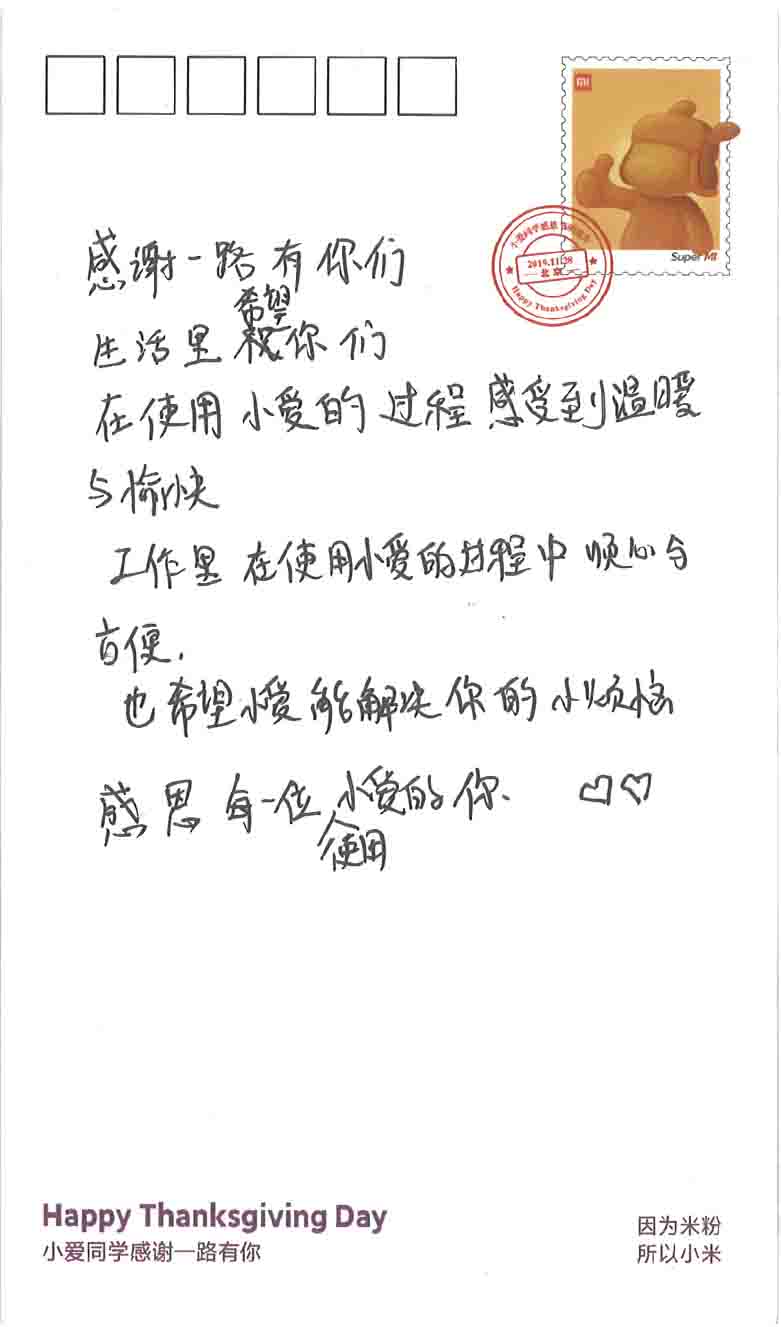 MI
Super MI
小爱同学感恩
2019.11.28
北京
Happy Thanksgiving Day
感谢一路有你们
希望
生活里祝你们
在使用小爱的过程感受到温暖
与愉快
工作里在使用小爱的过程中顺心与
方便.
也希望小爱能解决你的小烦恼
感恩每一位小爱的你、
使用
Happy Thanksgiving Day
小爱同学感谢一路有你
因为米粉
所以小米